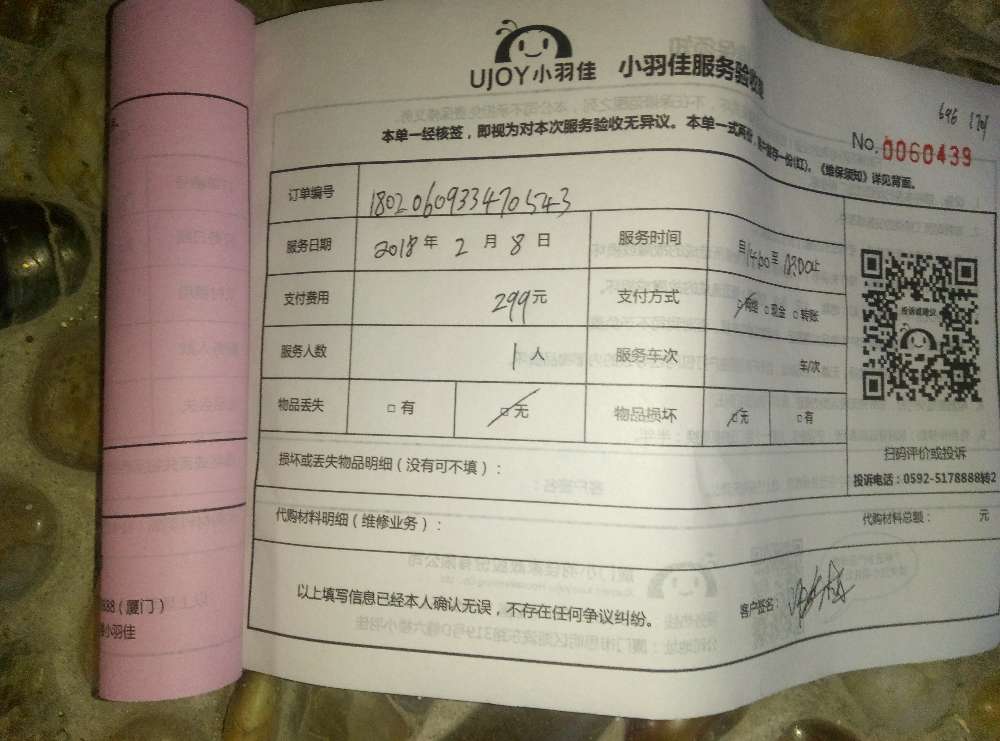 UJOY小羽佳 小羽佳服务验收单
646 1701
本单一经核签，即视为对本次服务验收无异议。本单一式两份，客户留存一份(红)。《维保须知》详见背面。
No. 0060439
订单编号 1802060933470543
服务日期 2018年 2月 8日 服务时间 自14:00至18:00止
支付费用 299元 支付方式 网络 □现金 □转账
服务人数 1人 服务车次 车/次
物品丢失 □有 □无 物品损坏 □无 □有
投诉或建议
扫码评价或投诉
投诉电话：0592-5178888转2
损坏或丢失物品明细（没有可不填）：
代购材料明细（维修业务）： 代购材料总额： 元
以上填写信息已经本人确认无误，不存在任何争议纠纷。 客户签名：
888（厦门）
小羽佳